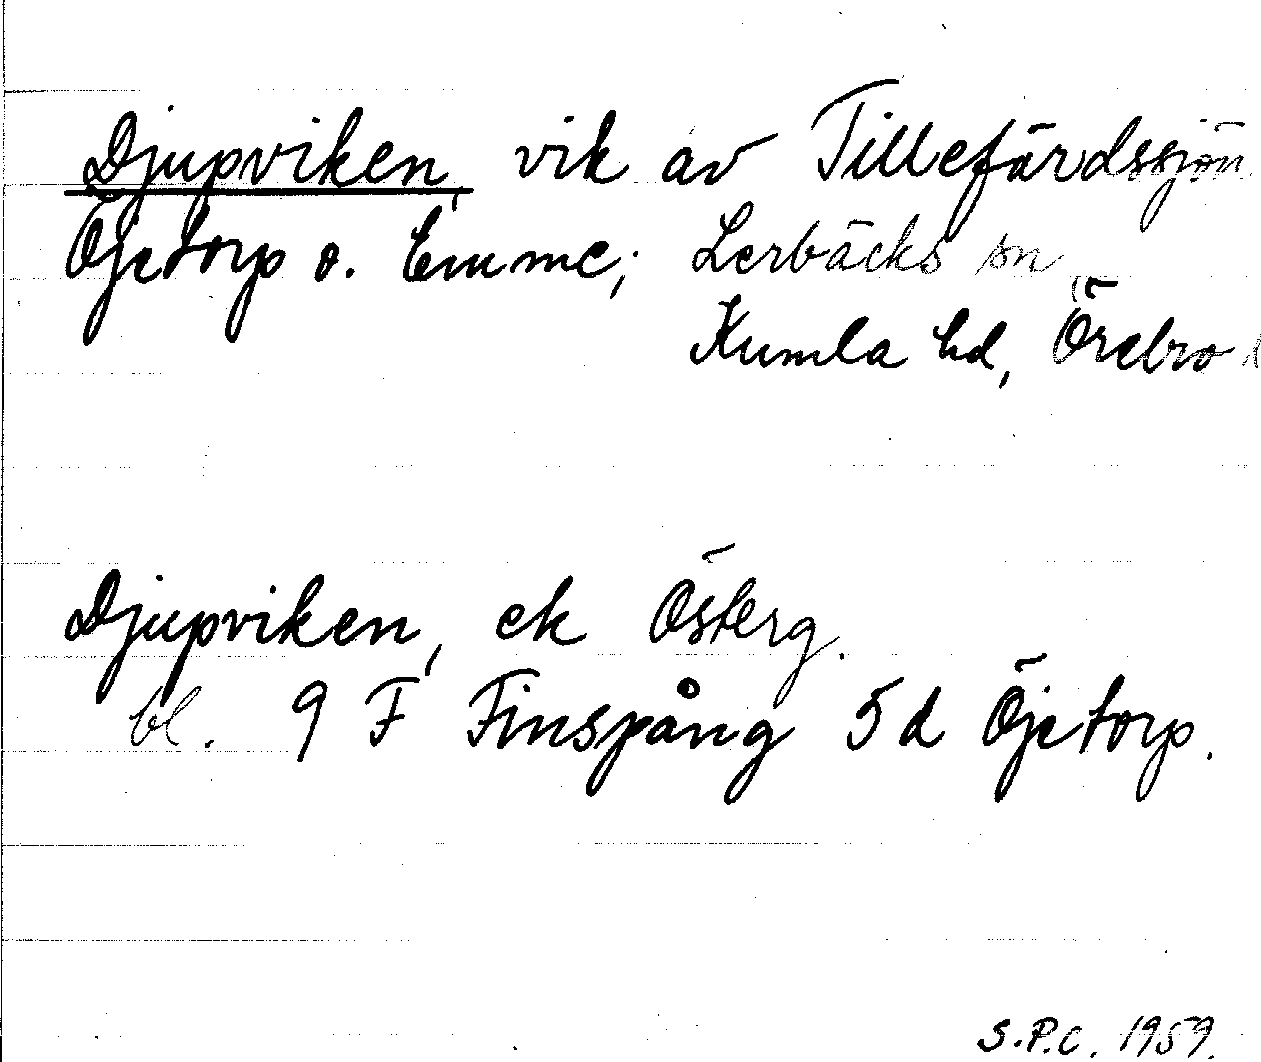 Djupviken, vik av Tillefärdssjön
Öjetorp o. Emme; Lerbäcks sn
Kumla hd, Örebro l
Djupviken, ek Österg.
bl. 9 F Finspång 5 d Öjetorp.
S.P.C. 1959.